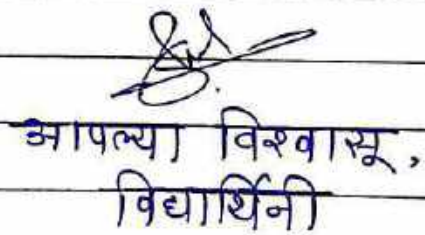 आपल्या विश्वासू,
विद्यार्थिनी